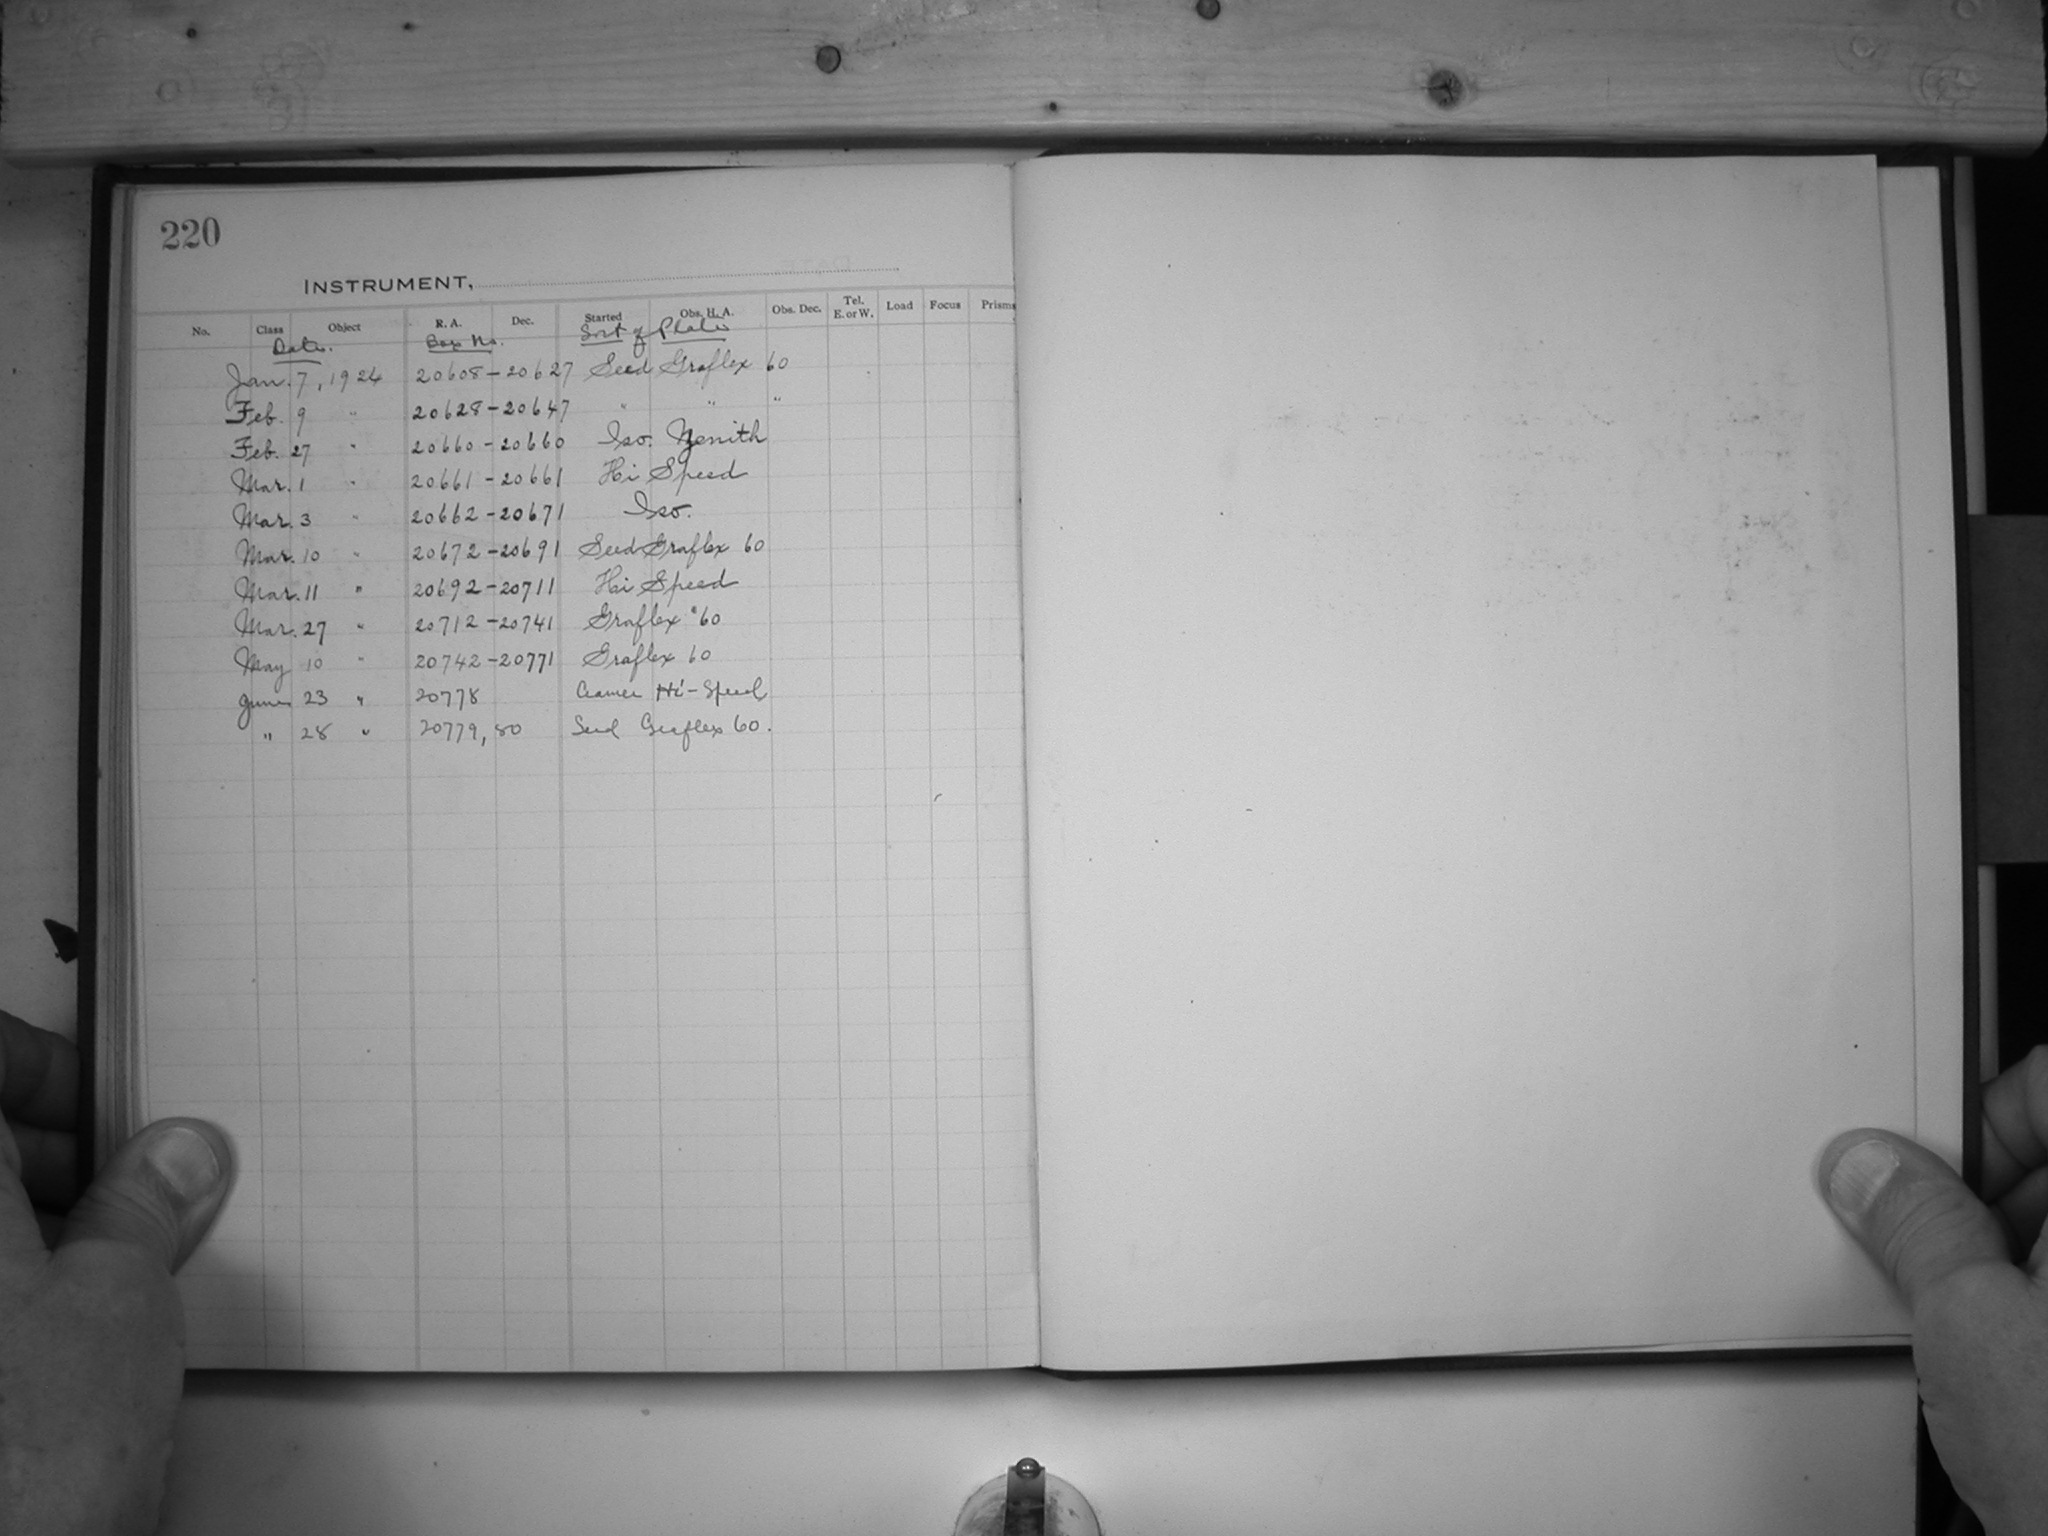 220
INSTRUMENT,
No. Class Object R. A. Dec. Started Obs. H. A. Obs. Dec. Tel. E. or W. Load Focus Prisms
Date. Box No. Sort of Plate
Jan. 7, 1924 20608-20627 Seed Graflex 60
Feb. 9 " 20628-20647 " " "
Feb. 27 " 20660-20660 Iso. Zenith
Mar. 1 " 20661-20661 Hi Speed
Mar. 3 " 20662-20671 Iso.
Mar. 10 " 20672-20691 Seed Graflex 60
Mar. 11 " 20692-20711 Hi Speed
Mar. 27 " 20712-20741 Graflex "60
May 10 " 20742-20771 Graflex 60
June 23 " 20778 Cramer Hi-Speed
" 28 " 20779, 80 Seed Graflex 60.